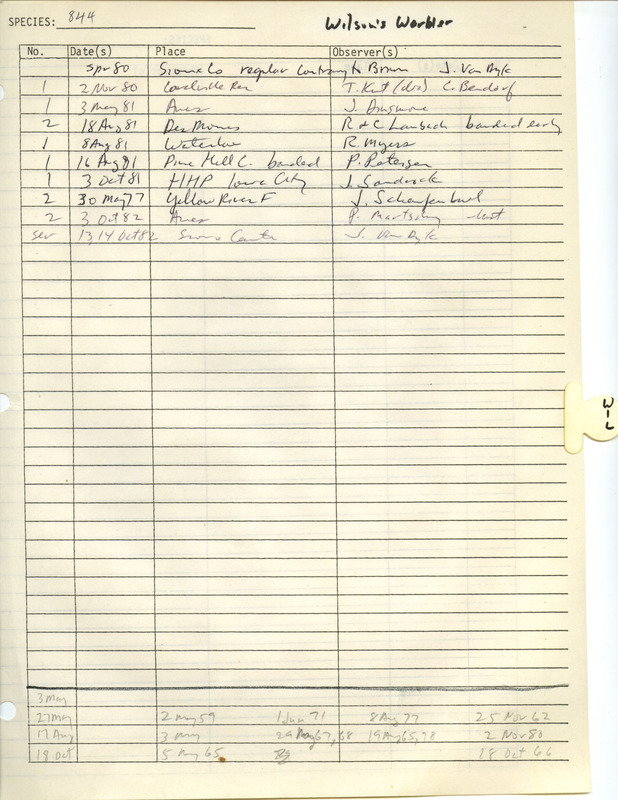 SPECIES: 844 Wilson's Warbler
No. Date(s) Place Observer(s)
Spr 80 Sioux Co regular contrary to Brown J. Van Dyk
1 2 Nov 80 Coralville Res T. Kent (doc) C. Bendorf
1 3 May 81 Ames J. Dinsmore
2 18 Aug 81 Des Moines R & C Laubach banded early
1 8 Aug 81 Waterloo R. Myers
1 16 Aug 81 Pine Hill C. banded P. Petersen
1 3 Oct 81 HHP Iowa City J. Sandrock
2 30 May 77 Yellow River F J. Schaufenbuel
2 3 Oct 82 Ames P. Martsching
Sev 13,14 Oct 82 Sioux Center J. Van Dyk
WIL
3 May
27 May 2 May 59 1 Jun 71 8 Aug 77 25 Nov 62
17 Aug 3 May 29 May 67, 68 19 Aug 65, 78 2 Nov 80
18 Oct 5 May 65 18 Oct 66